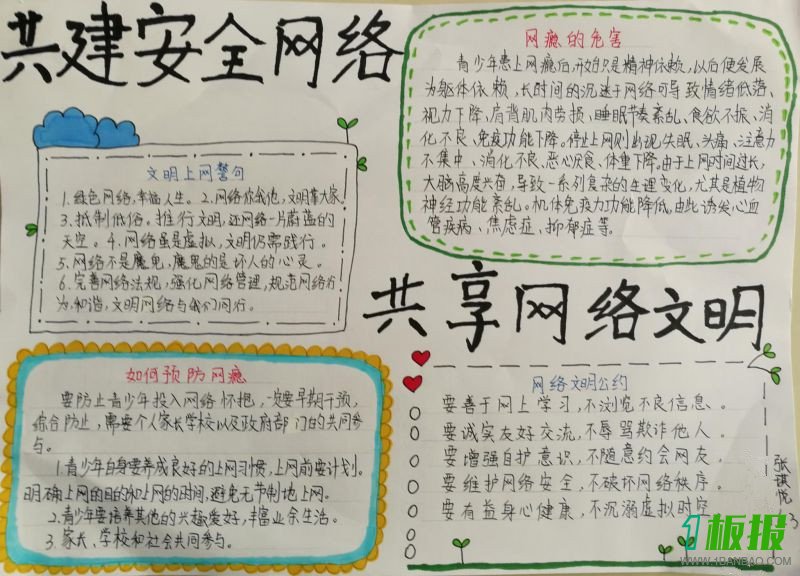 共建安全网络
文明上网警句
1.绿色网络,幸福人生。2.网络你我他,文明靠大家。
3.抵制低俗。推行文明,还网络一片蔚蓝的
天空。4.网络虽是虚拟,文明仍需践行。
5.网络不是魔鬼,魔鬼的是坏人的心灵。
6.完善网络法规,强化网络管理,规范网络行
为,和谐,文明网络与我们同行。
网瘾的危害
青少年患上网瘾后,开始只是精神依赖,以后便发展
为躯体依赖,长时间的沉迷于网络可导致情绪低落、
视力下降、肩背肌肉劳损、睡眠节奏紊乱、食欲不振、消
化不良、免疫功能下降。停止上网则出现失眠、头痛、注意力
不集中、消化不良、恶心厌食、体重下降。由于上网时间过长,
大脑高度兴奋,导致一系列复杂的生理变化,尤其是植物
神经功能紊乱。机体免疫力功能降低。由此诱发心血
管疾病、焦虑症、抑郁症等。
共享网络文明
如何预防网瘾
要防止青少年投入网络怀抱,一定要早期干预,
综合防止,需要个人家长学校以及政府部门的共同参
与。
1.青少年自身要养成良好的上网习惯,上网前要计划。
明确上网的目的和上网的时间,避免无节制地上网。
2.青少年要培养其他的兴趣爱好,丰富业余生活。
3.家长、学校和社会共同参与。
网络文明公约
要善于网上学习,不浏览不良信息。
要诚实友好交流,不辱骂欺诈他人。
要增强自护意识,不随意约会网友。
要维护网络安全,不破坏网络秩序。
要有益身心健康,不沉溺虚拟时空
张琪悦
板报
WWW.1BANBAO.COM